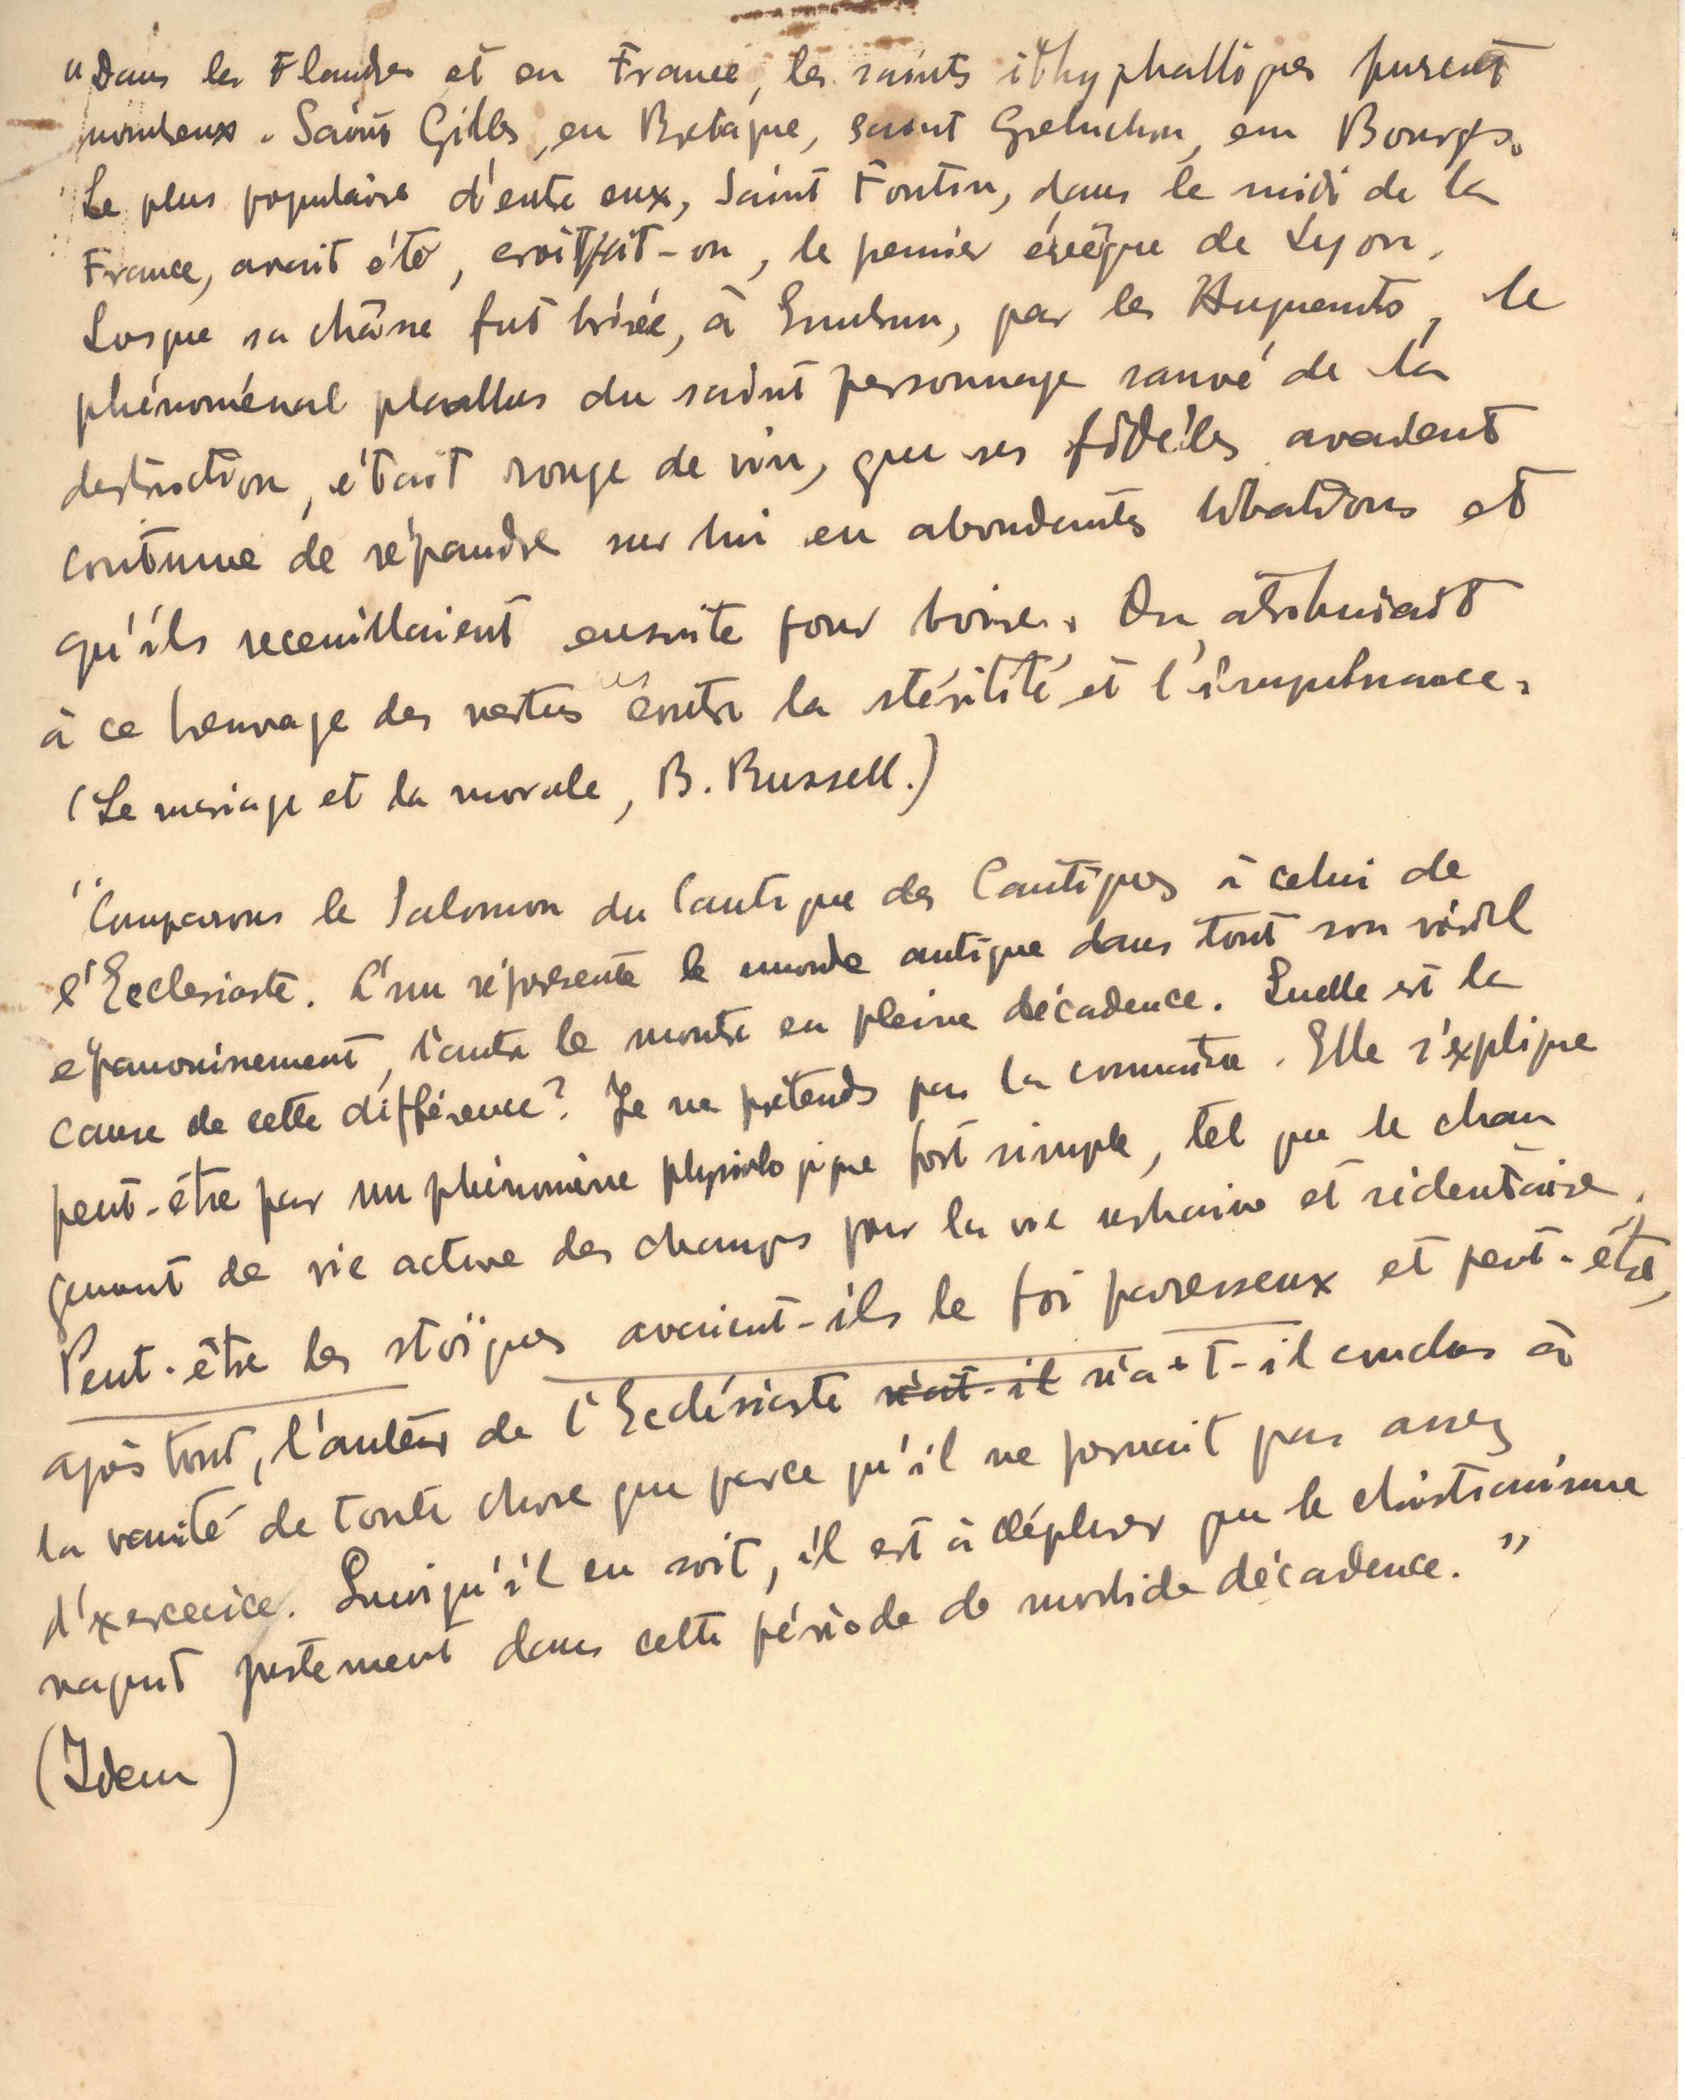 "Dans les Flandres et en France, les saints ithyphalliques furent
nombreux. Saint Gilles, en Bretagne, saint Greluchon, em Bourges.
Le plus populaire d'entre eux, Saint Foutin, dans le midi de la
France, avait été, croit-on, le premier évêque de Lyon.
Lorsque sa châsse fut brisée, à Embrun, par les Huguenots, le
phénoménal phallus du saint personnage sauvé de la
destruction, était rouge de vin, que ses fidèles avaient
coutume de répandre sur lui en abondantes libations et
qu'ils receuillaient ensuite pour boire. On atribuiait
à ce breuvage des vertus contre la stérilité et l'impuissance.
(Le mariage et la morale, B. Russell.)
"Comparons le Salomon du Cantique des Cantiques à celui de
l'Ecclesiaste. L'un répresente le monde antique dans tout son viril
épanouissement, l'autre le montre en pleine décadence. Quelle est la
cause de cette différence? Je ne prétends pas la connaitre. Elle s'explique
peut-être par un phénomène physiologique fort simple, tel que le chan
gement de vie active des champs pour la vie urbaine et sédentaire.
Peut-être les stoïques avaient-ils le foi paresseux et peut-être,
après tout, l'auteur de l'Ecclésiaste n'at-il n'a-t-il conclus à
la vanité de toute chose que parce qu'il ne prenait pas assez
d'exercecice. Quoiqu'il en soit, il est à déplorer que le christianisme
naquit justement dans cette période de morbide décadence."
(Idem)